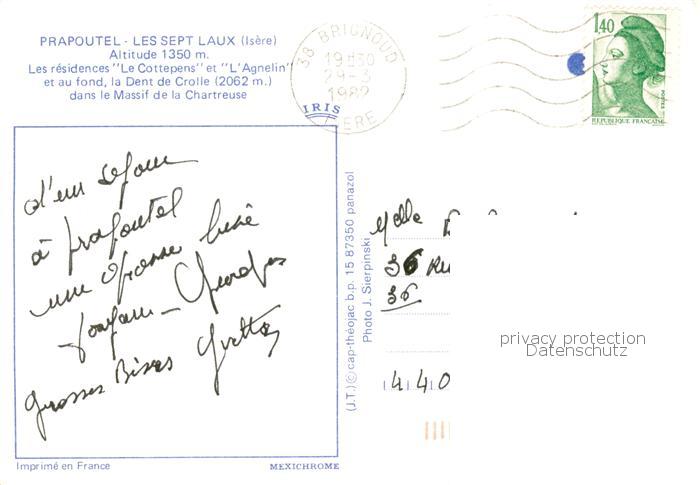 PRAPOUTEL - LES SEPT LAUX (Isère)
Altitude 1350 m.
Les résidences "Le Cottepens" et "L'Agnelin"
et au fond, la Dent de Crolle (2062 m.)
dans le Massif de la Chartreuse
38 BRIGNOUD
19H30
29-3
1982
ISERE
1,40
POSTES
REPUBLIQUE FRANÇAISE
IRIS
d'un séjour
à prapoutel
une bise
Grosses Bises Yvette
(J.T.) © cap-théojac b.p. 15 87350 panazol
Photo J. Sierpinski
Melle
36 RU
36
440
privacy protection
Datenschutz
Imprimé en France
MEXICHROME